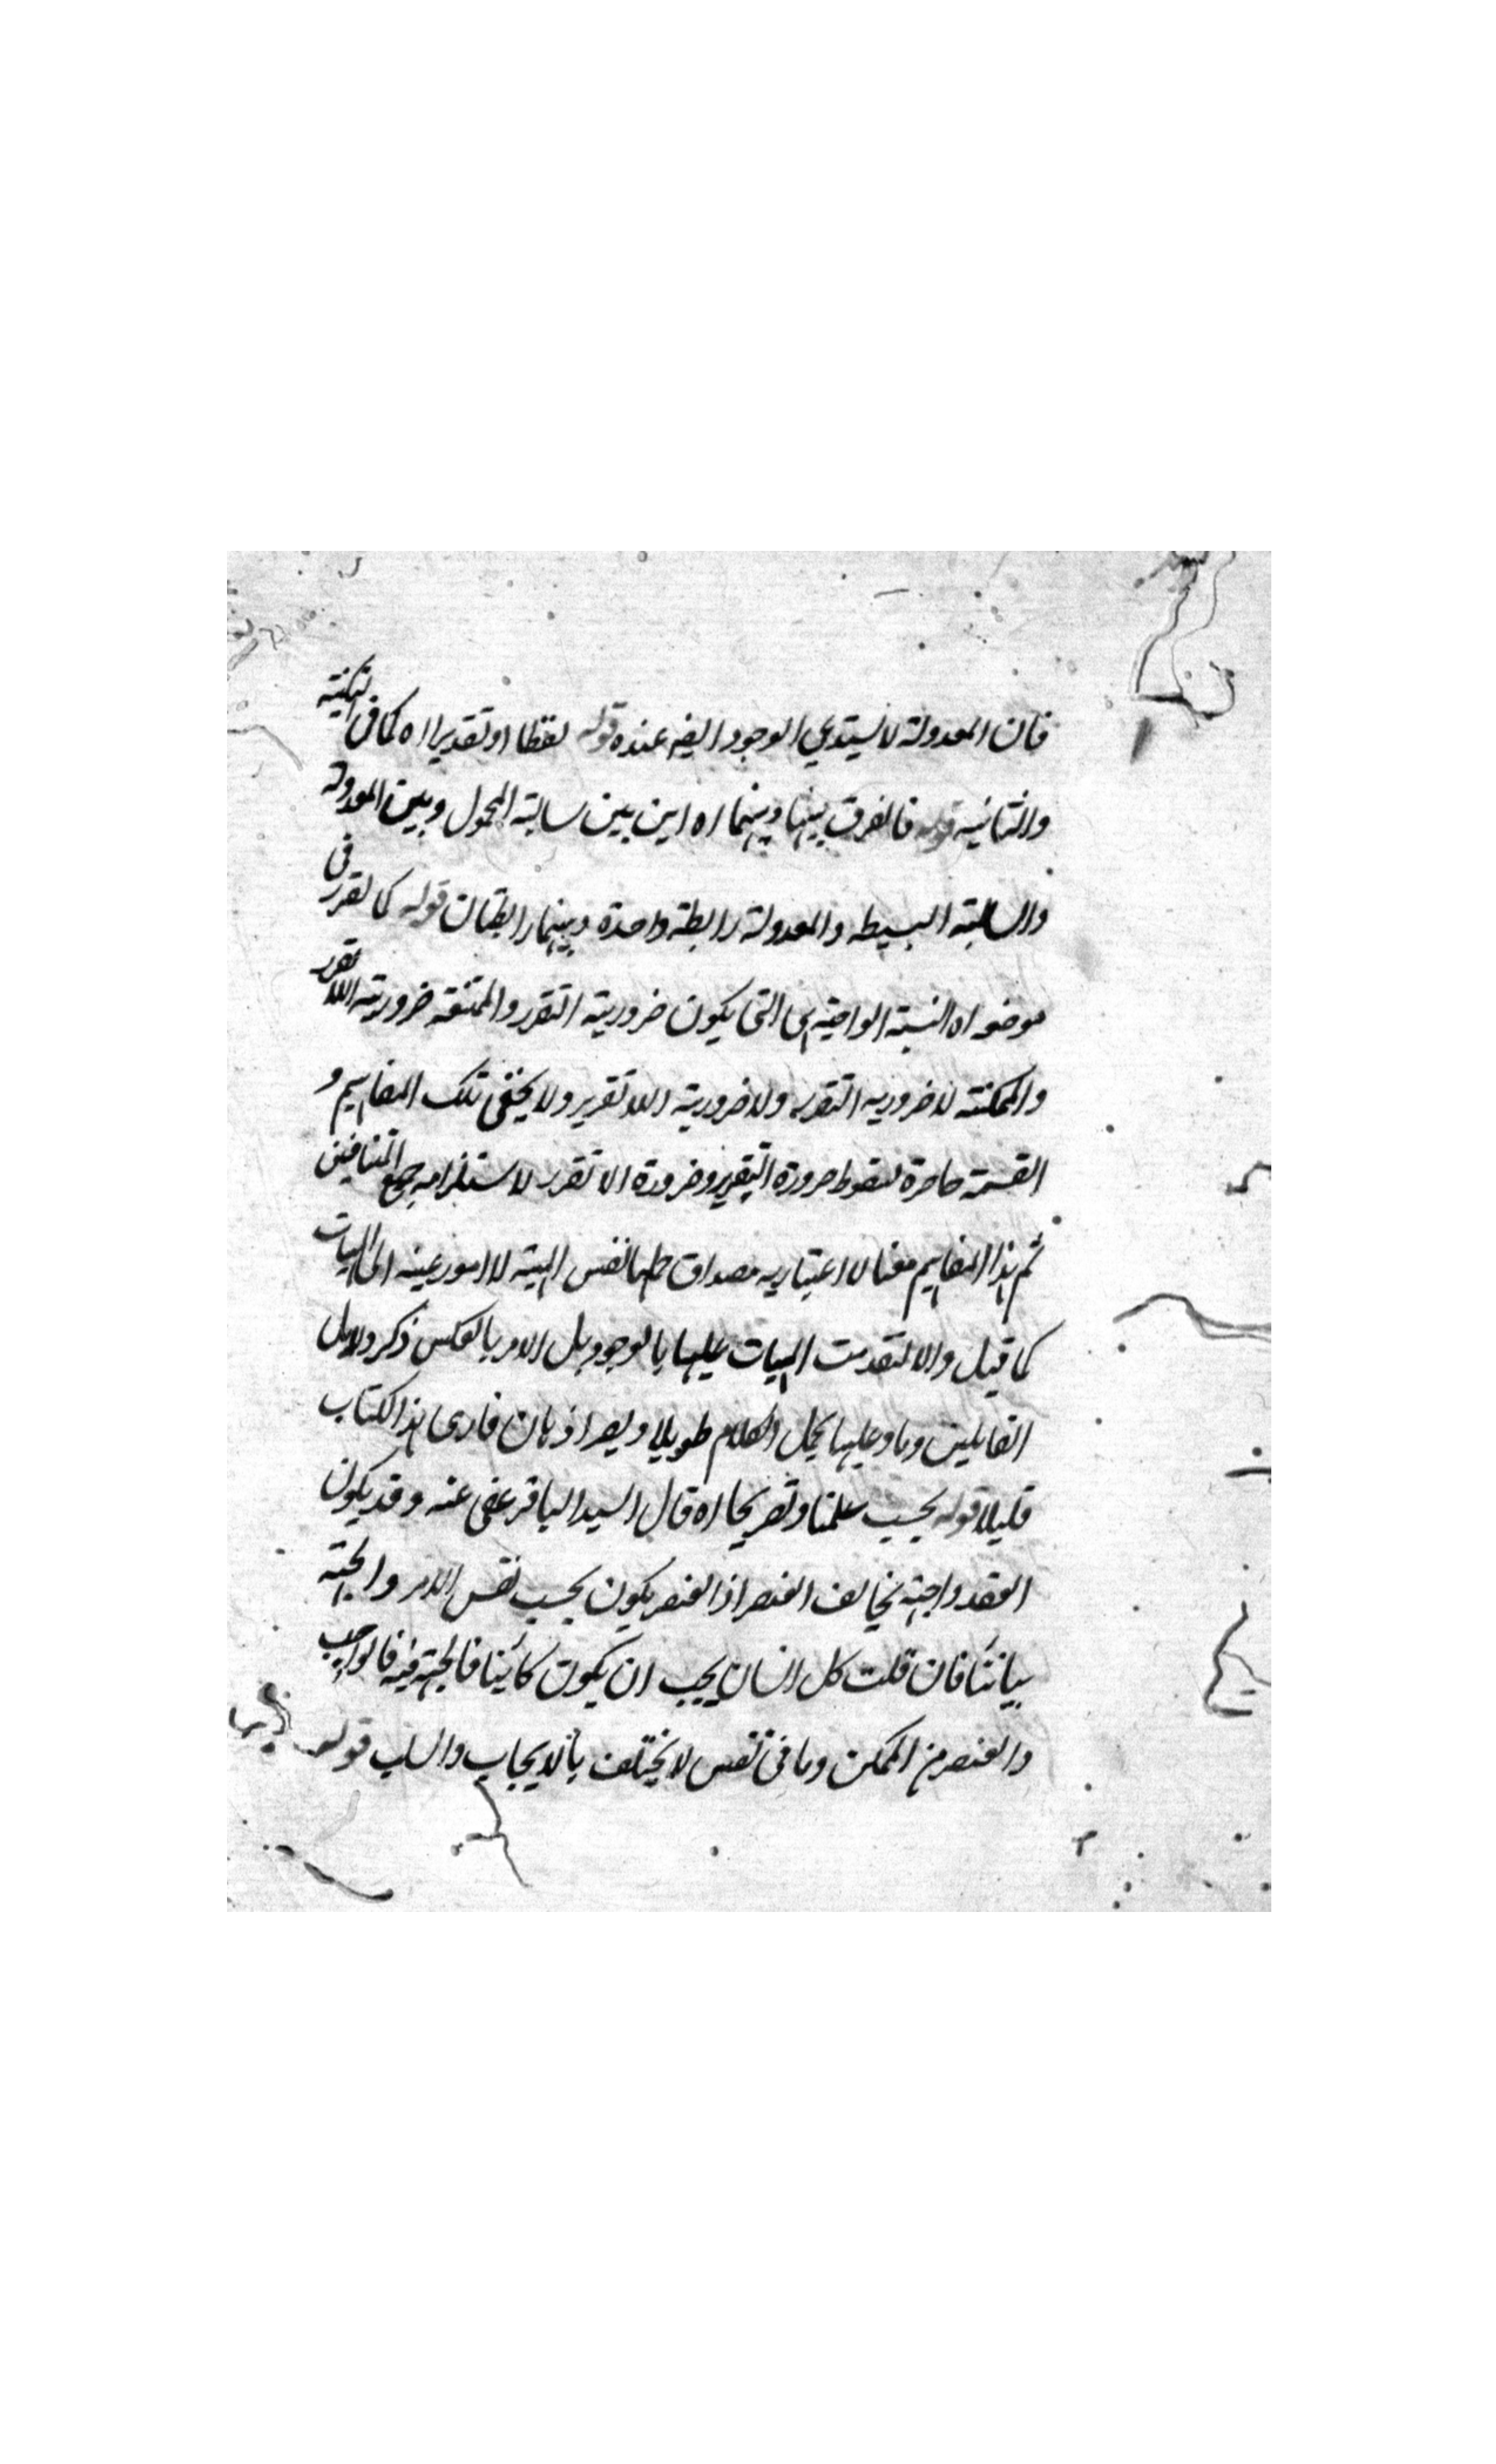 فان المعدولة لا يستدعي الوجود ايضه عنده قوله لفظا او تقديرا اه كما فى الثلثية
والثنائية قوله فالفرق بينها وبينهما اه اين بين سالبة المحمول وبين المعدولة
والسالبة البسيطه والمعدولة رابطة واحدة وبينهما رابطتان قوله كما تقرر فى
موضعه اه النسبة الواجبة هى التى يكون ضرورية التقرر والممتنعه ضرورية اللاتقرر
والممكنة لا ضروريه التقرر ولا ضرورية اللاتقرر ولا يخفى تلك المفاهيم و
القسمة حاصرة لسقوط ضرورة التقرر وضرورة الاتقرر لاستلزامه جمع المتنافيين
ثم هذا المفاهيم معنا لا اعتباريه مصداق حملها نفس المهية لا امور عينه الى الماهيات
كما قيل والا لتقدمت المهيات عليها بالوجود بل الامر بالعكس ذكر دلايل
القايلين وما وعليها يجعل الكلام طويلا و اذهان قارى هذا الكتاب
قليلا قوله بحسب علمنا وتصريحا اه قال السيد الباقر عفى عنه وقد يكون
العقد واجهته تخالف العنصر اذ العنصر يكون بحسب نفس الامر والجهة
بياننا فان قلت كل انسان يجب ان يكون كائنا فالجهة فيه فالواجب
والعنصر من الممكن وما فى نفس لا يختلف بالايجاب والسلب قوله